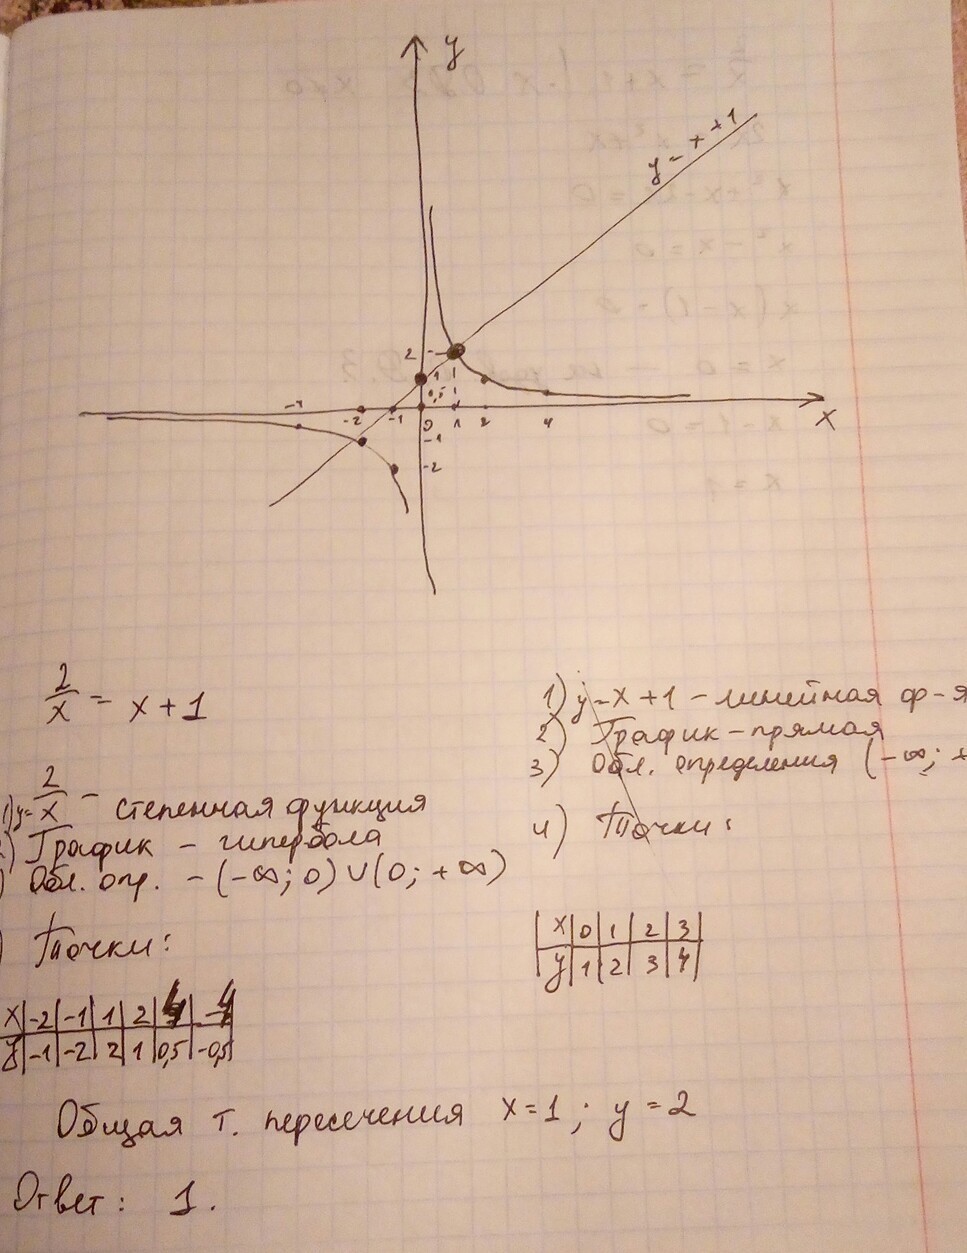 y
y = x + 1
2
1
0,5
-4 -2 -1 0 1 2 4 x
-1
-2
2/x = x + 1
1) y = 2/x - степенная функция
2) График - гипербола
) Обл. опр. - (-∞; 0) ∪ (0; +∞)
) Точки:
x | -2 | -1 | 1 | 2 | 4 | -4
y | -1 | -2 | 2 | 1 | 0,5 | -0,5
1) y = x + 1 - линейная ф-я
2) График - прямая
3) Обл. определения (-∞; +
4) Точки:
x | 0 | 1 | 2 | 3
y | 1 | 2 | 3 | 4
Общая т. пересечения x = 1 ; y = 2
Ответ: 1.